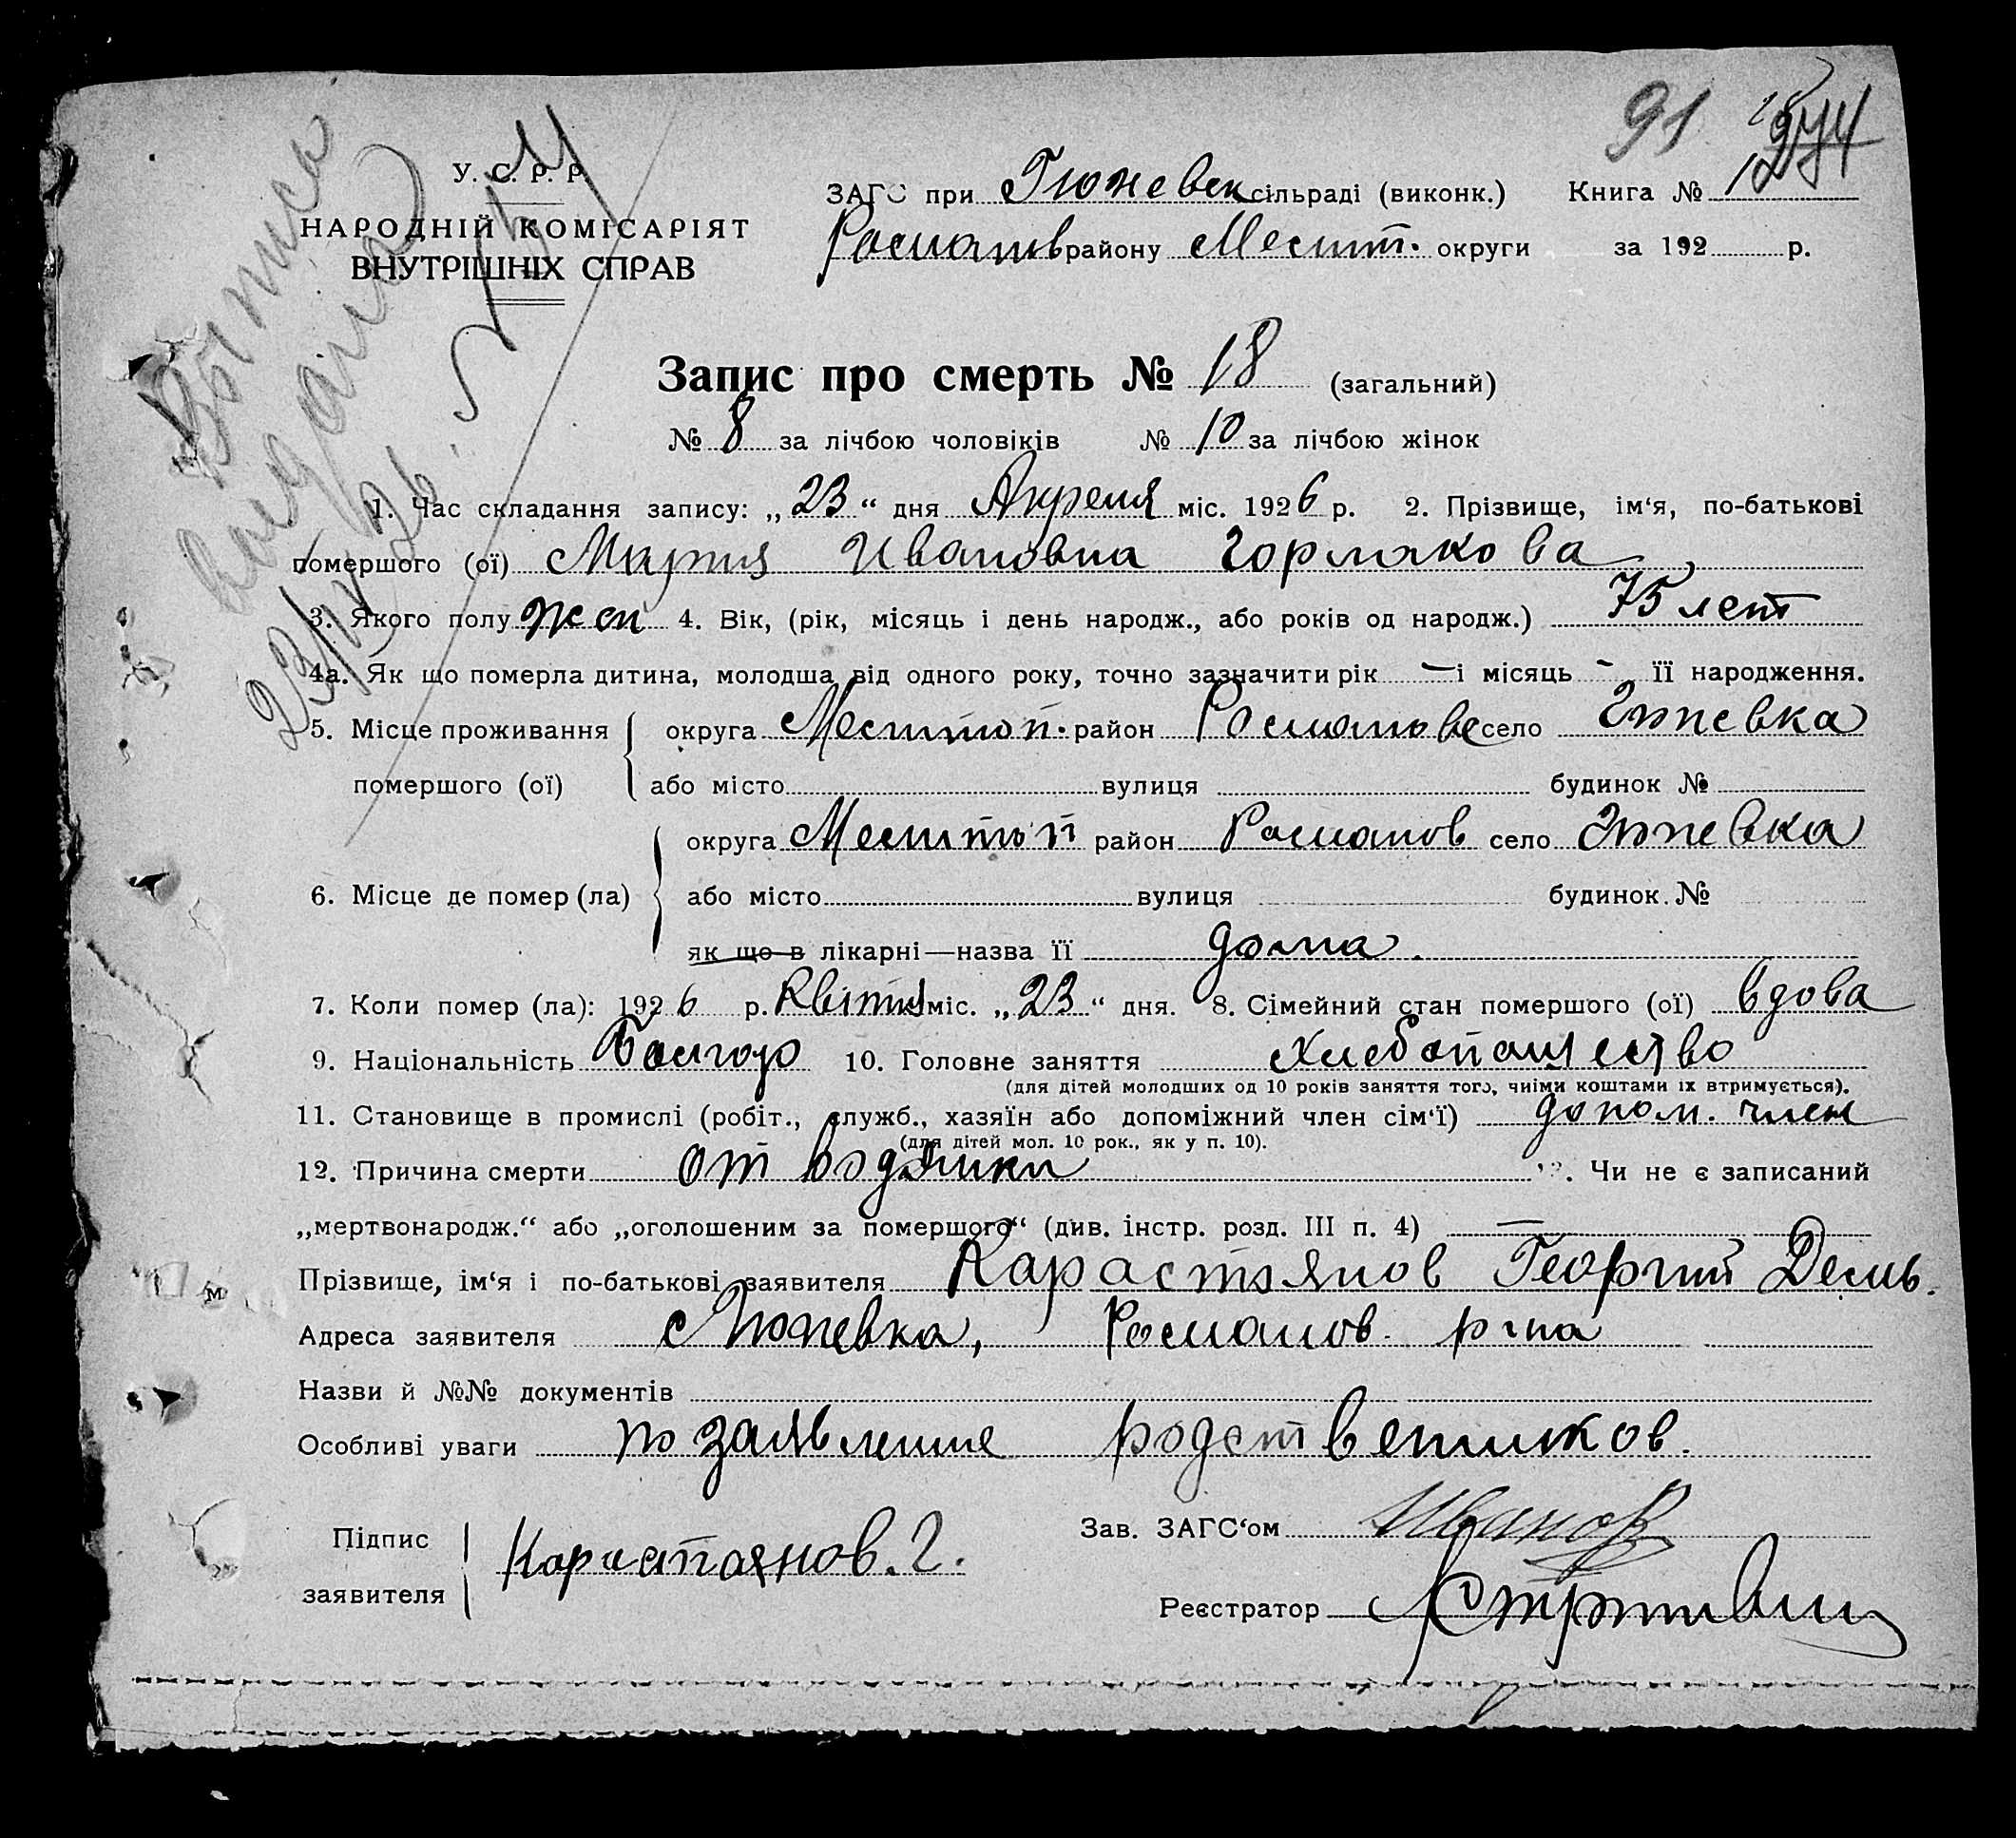 91 274
У. С. Р. Р.
НАРОДНІЙ КОМІСАРІЯТ
ВНУТРІШНІХ СПРАВ
Выпись
выдана
23/IV 26.
ЗАГС при Гюневск сільраді (виконк.) Книга № 1
Романов району Мелит. округи за 192 р.
Запис про смерть № 18 (загальний)
№ 8 за лічбою чоловіків № 10 за лічбою жінок
1. Час складання запису: „23“ дня Апреля міс. 1926 р. 2. Прізвище, ім‘я, по-батькові
помершого (ої) Мария Ивановна
3. Якого полу жен 4. Вік, (рік, місяць і день народж., або років од народж.) 75 лет
4а. Як що померла дитина, молодша від одного року, точно зазначити рік — і місяць - її народження.
5. Місце проживання округа Мелитоп. район Романовс село Гюневка
помершого (ої) або місто вулиця будинок №
округа Мелитоп район Романов село Гюневка
6. Місце де помер (ла) або місто вулиця будинок. №
як що в лікарні—назва її дома.
7. Коли помер (ла): 1926 р. Квітня міс. „23“ дня. 8. Сімейний стан помершого (ої) вдова
9. Національність Болгар 10. Головне заняття Хлебопашество
(для дітей молодших од 10 років заняття того, чиїми коштами їх втримується).
11. Становище в промислі (робіт., служб., хазяїн або допоміжний член сім‘ї) допом. член
(для дітей мол. 10 рок., як у п. 10).
12. Причина смерти от водянки 13. Чи не є записаний
„мертвонародж.“ або „оголошеним за помершого“ (див. інстр. розд. III п. 4) —
Прізвище, ім‘я і по-батькові заявителя Карастоянов Георгий
Адреса заявителя с Гюневка, Романов. р-на
Назви й №№ документів
Особливі уваги по заявление родственников.
Підпис
заявителя Карастоянов. Г.
Зав. ЗАГС‘ом Иванов
Реєстратор